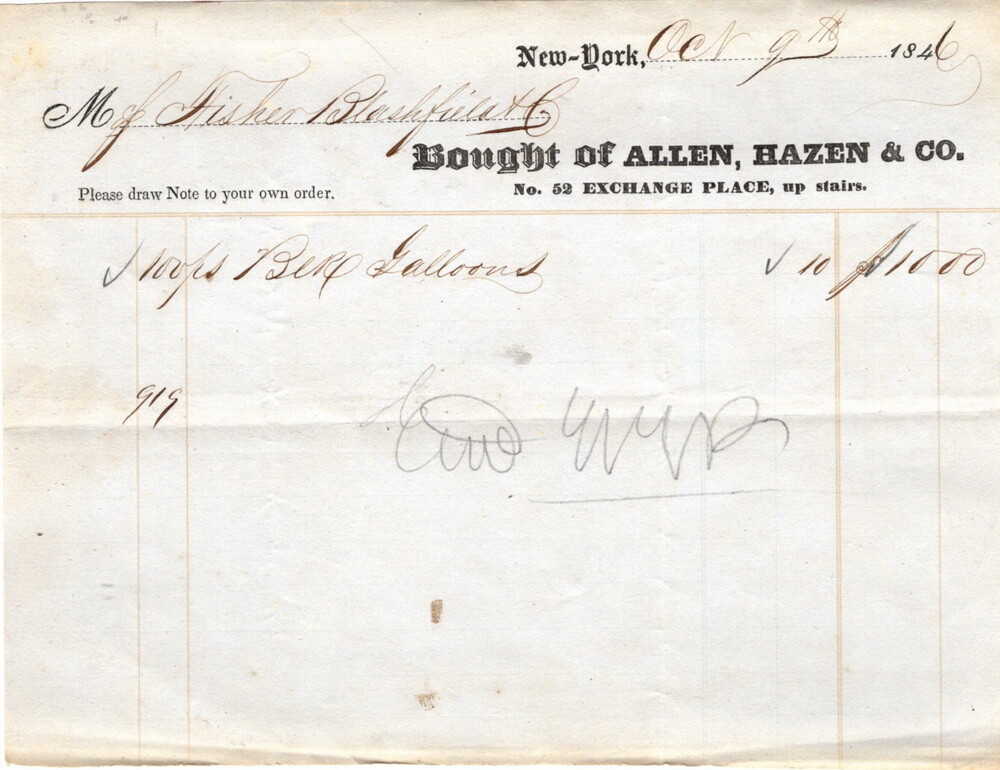 New-York, Oct 9th 1846
Mess Fisher Blashfield & Co
Bought of ALLEN, HAZEN & CO.
Please draw Note to your own order.
No. 52 EXCHANGE PLACE, up stairs.
√ 100 ps Blk Galloons √ 10 $ 10 00
919